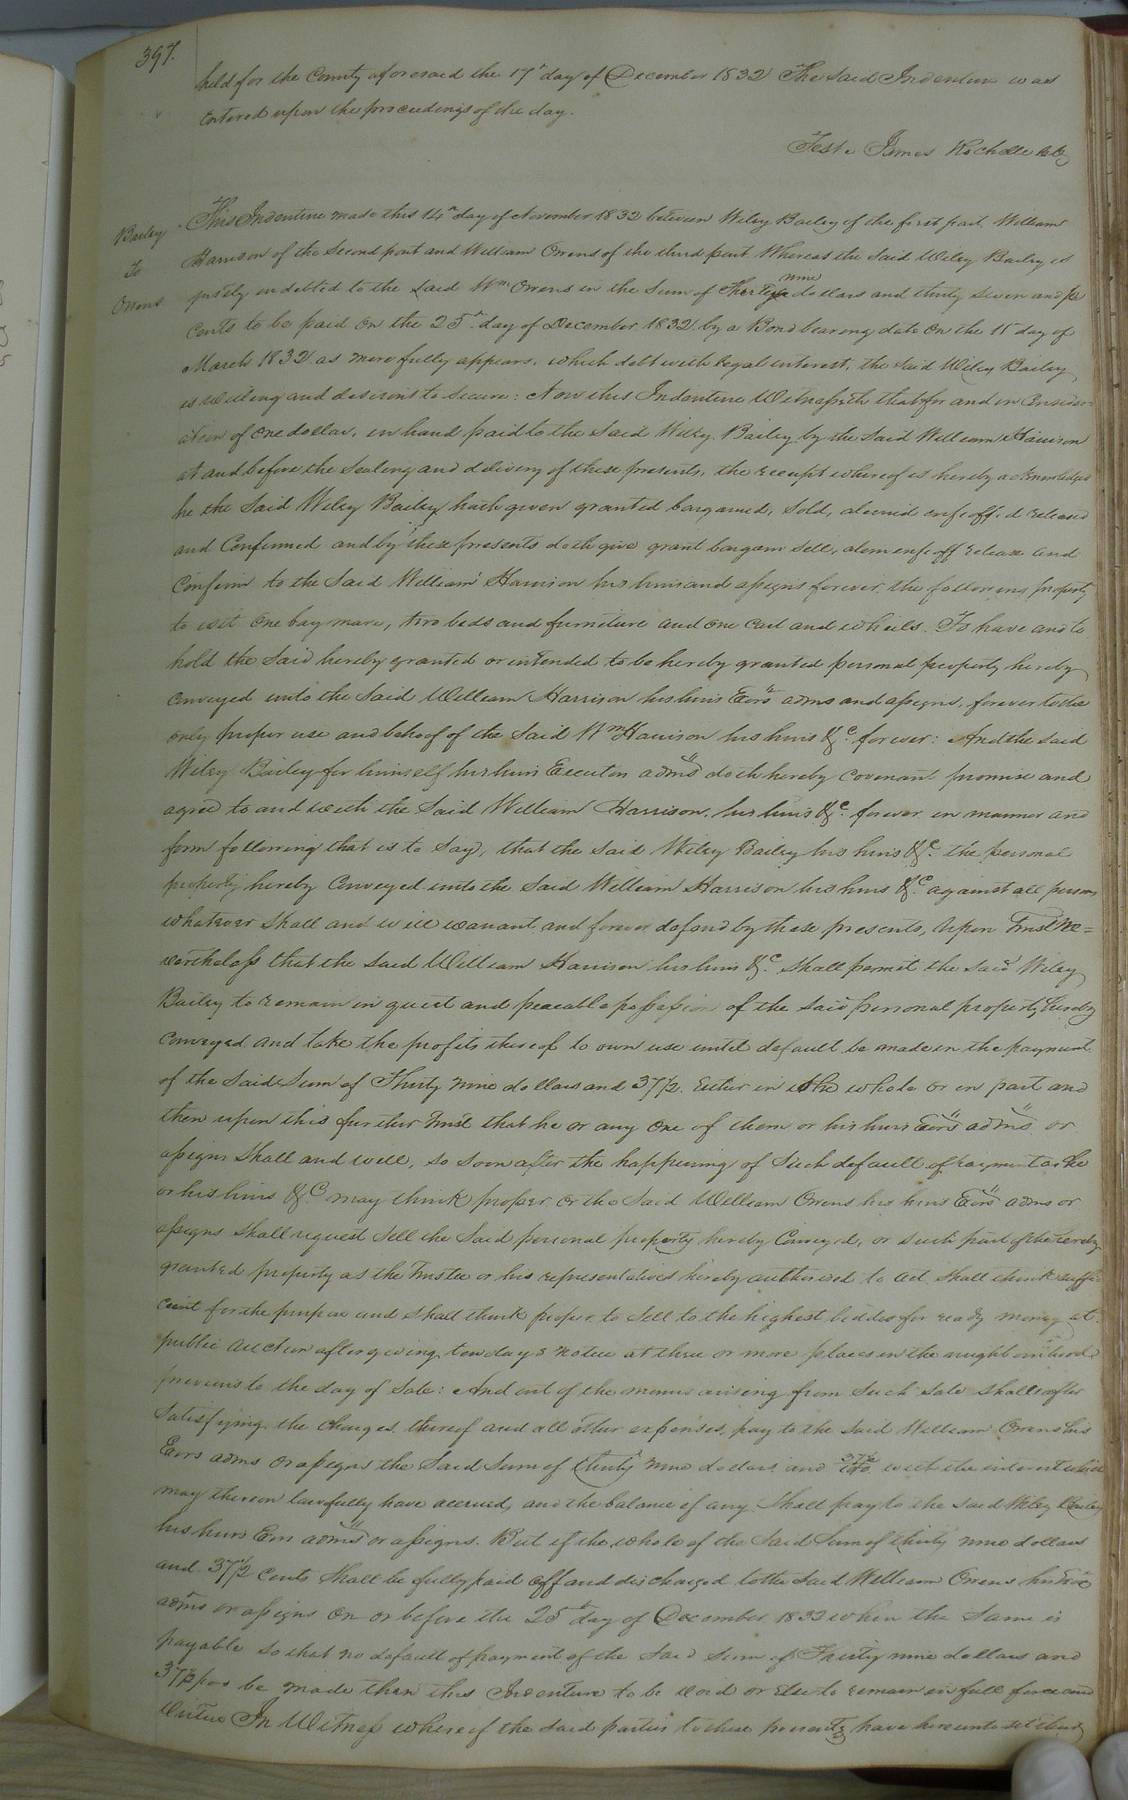 397.
held for the County aforesaid the 17th day of December 1832 The said Indenture was
Entered upon the proceedings of the day.
Teste James Rochelle
Bailey
To
Owens
This Indenture made this 14th day of November 1832 between Wiley Bailey of the first part William
Harrison of the Second part and William Owens of the third part Whereas the Said Wiley Bailey is
justly indebted to the said Wm Owens in the Sum of Thirty nine dollars and thirty seven and ½
Cents to be paid on the 25th day of December 1832 by a Bond bearing date on the 11 day of
March 1832 as more fully appears, which debt with legal interest, the said Wiley Bailey
is willing and desirous to Secure: Now this Indenture Witnesseth that for and in Consider-
ation of one dollar, in hand paid to the Said Wiley Bailey by the Said William Harrison
at and before the Sealing and delivery of these presents, the receipt whereof is hereby acknowledged
he the Said Wiley Bailey hath given granted bargained, Sold, aliened enfeoffed released
and Confirmed and by these presents doth give grant bargain Sell, alien enfeoff release and
Confirm to the Said William Harrison his heirs and assigns forever the following property
to wit One bay mare, two beds and furniture and one Cart and wheels. To have and to
hold the Said hereby granted or intended to be hereby granted personal property hereby
Conveyed unto the Said William Harrison his heirs Exors adms and assigns, forever to the
only proper use and behoof of the Said Wm Harrison his heirs &c. forever: And the Said
Wiley Bailey for himself his heirs Executors adms doth hereby Covenant promise and
agree to and with the Said William Harrison, his heirs &c. forever in manner and
form following that is to Say, that the Said Wiley Bailey his heirs &c. the personal
property hereby Conveyed unto the Said William Harrison his heirs &c. against all persons
whatever Shall and will warrant and forever defend by these presents, Upon Trust Ne=
vertheless that the Said William Harrison his heirs &c. Shall permit the Said Wiley
Bailey to remain in quiet and peaceable possession of the Said personal property hereby
Conveyed and take the profits thereof to own use until default be made in the payment
of the Said Sum of Thirty nine dollars and 37½. Either in the whole or in part and
then upon this further Trust that he or any one of them or his heirs Exors adms or
assigns Shall and will, so soon after the happening of Such default of payment as he
or his heirs &c may think proper or the Said William Owens his heirs Exors adms or
assigns Shall request Sell the Said personal property hereby Conveyed, or such part of the hereby
granted property as the Trustee or his representatives hereby authorised to act Shall think suffi
cient for the purpose and Shall think proper to Sell to the highest bidder for ready money at
public Auction after giving ten days notice at three or more places in the neighbourhood
previous to the day of Sale: And out of the monies arising from Such Sale Shall after
Satisfying the Charges thereof and all other expenses, pay to the Said William Owens his
Exors adms or assigns the Said Sum of thirty nine dollars and 37½ with the interest which
may thereon lawfully have accrued, and the balance if any Shall pay to the Said Wiley Bailey
his heirs Exors adms or assigns. But if the whole of the Said Sum of thirty nine dollars
and 37½ Cents Shall be fully paid off and discharged to the Said William Owens his
adms or assigns on or before the 25th day of December 1832 when the Same is
payable so that no default of payment of the Said Sum of Thirty nine dollars and
37½ be made then this Indenture to be void or Else to remain in full force and
Virtue In Witness whereof the Said parties to these presents have hereunto set their